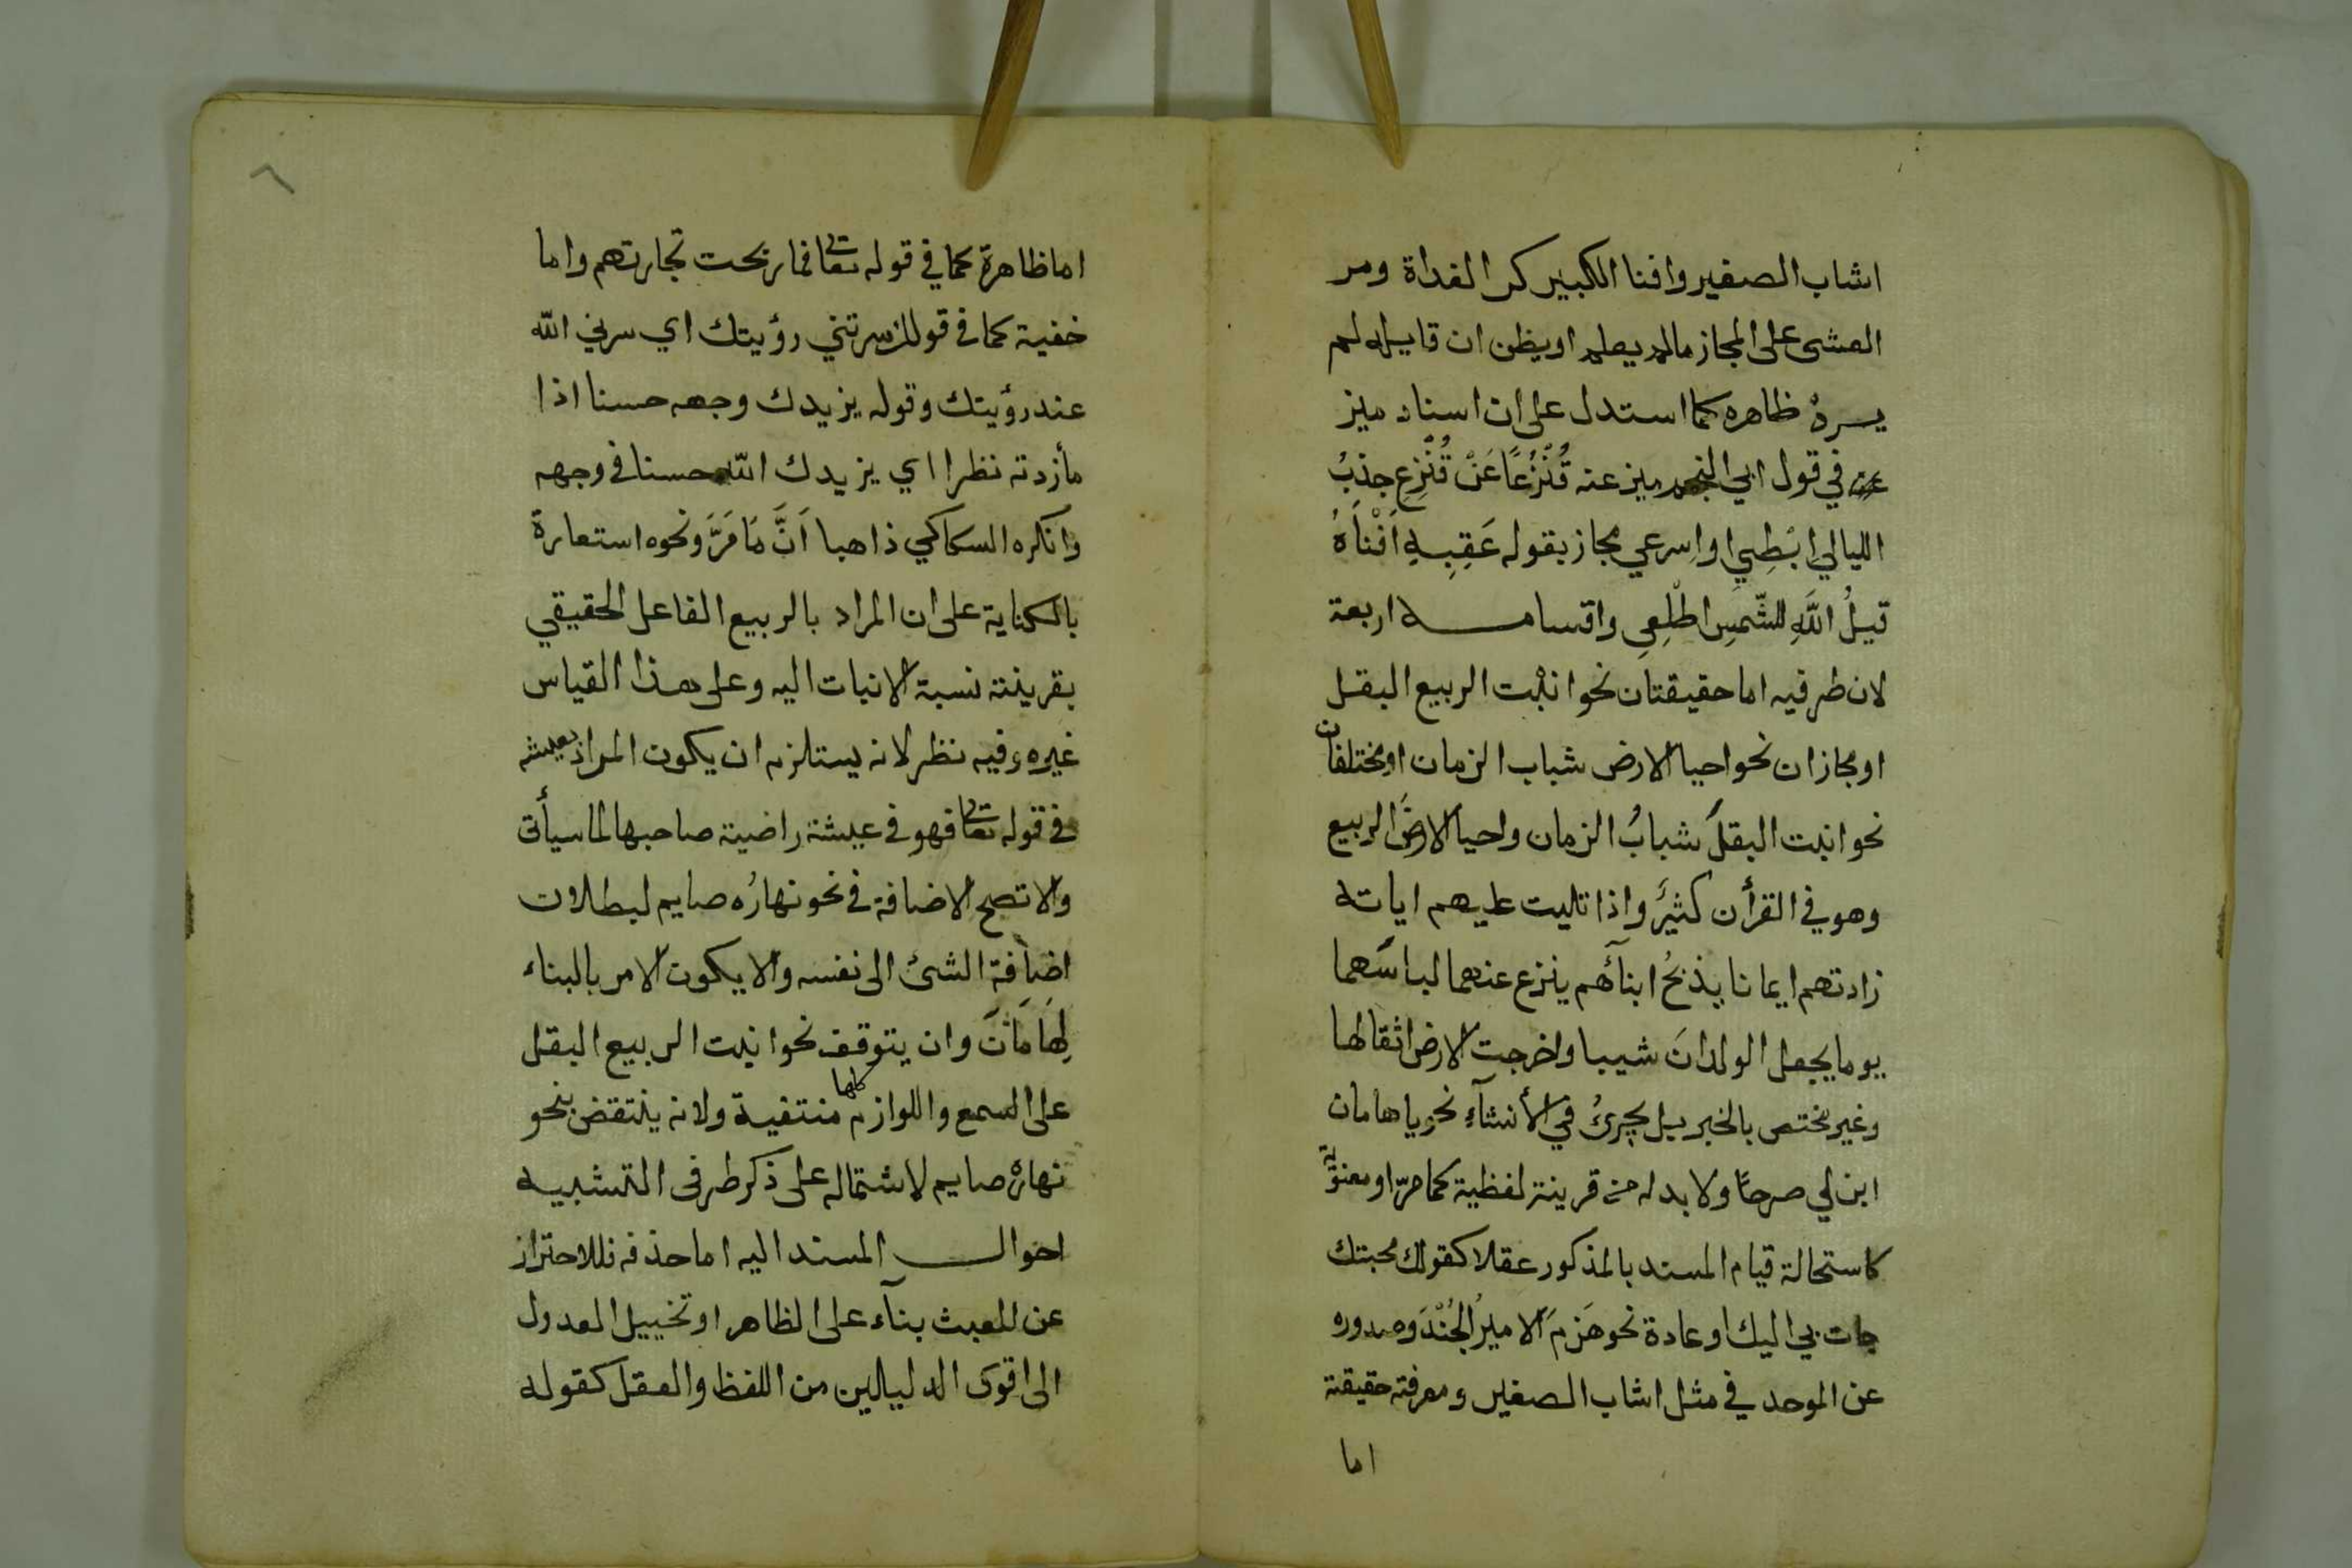 اشاب الصغير وافنا الكبير كر الغداة ومر
العشى على المجاز مالم يعلم او يظن ان قايله لم
يسرهْ ظاهره كما استدل على ان اسناد ميز
في قول ابي النجم ميز عنه قُنْزُعًا عَنْ قُنْزِعِ جذبُ
الليالي ابْطِيي او اسرعي مجاز بقوله عَقِيبِهِ اَفْنَاهُ
قيلُ اللَّهِ للشَّمسِ اطْلِعِى واقسامه اربعة
لان طرفيه اما حقيقتان نحو انبْت الربيع البقل
او مجازان نحو احيا الارض شباب الزمان او مختلفان
نحو انبت البقلَ شبابُ الزمان واحيا الارضَ الربيع
وهو في القرأن كثيرٌ واذا تليت عليهم اياته
زادتهم ايمانا يذبحُ ابنآئهم ينزع عنهما لباسَهما
يوما يجعل الولدانَ شيبا واخرجت الارض اثقالها
وغير مختص بالخبر بل يجرىُ في الأنشآءِ نحو ياهامان
ابن لي صرحًا ولا بد له من قرينة لفظية كما مرّ او معنويّة
كاستحالة قيام المسند بالمذكور عقلا كقولك محبتك
جات بي اليك او عادة نحو هَزمَ الاميرُ الجُنْدَ وصدوره
عن الموحد في مثل اشاب الصغير ومعرفة حقيقة
اما
٦
اما ظاهرة كما في قوله تعالى فما ربحت تجارتهم واما
خفية كما في قولك سرتني رؤيتك اي سرني الله
عند رؤيتك وقوله يزيدك وجهه حسنا اذا
مأزدته نظرا اي يزيدك الله حسنا في وجهه
وانكره السكاكي ذاهبا اَنَّ مَا مَرَّ ونحوه استعارة
بالكناية على ان المراد بالربيع الفاعل الحقيقي
بقرينة نسبة الانبات اليه وعلى هذا القياس
غيره وفيه نظر لانه يستلزم ان يكون المراد بعيشة
في قوله تعالى فهو في عيشة راضية صاحبها لما سيأتى
والا تصح الاضافة في نحو نهارُه صايم لبطلان
اضافة الشئ الى نفسه والا يكون الامر بالبناء
لِهَامَانَ وان يتوقف نحو انبت الربيع البقل
على السمع واللوازم كلها منتفية ولانه ينتقض بنحو
نهارهْ صايم لاشتماله على ذكر طرفى التشبيه
احوال المسند اليه اما حذفه فللاحترازِ
عن العبث بنآء على الظاهر او تخييل العدول
الى اقوى الدليلين من اللفظ والعقل كقوله